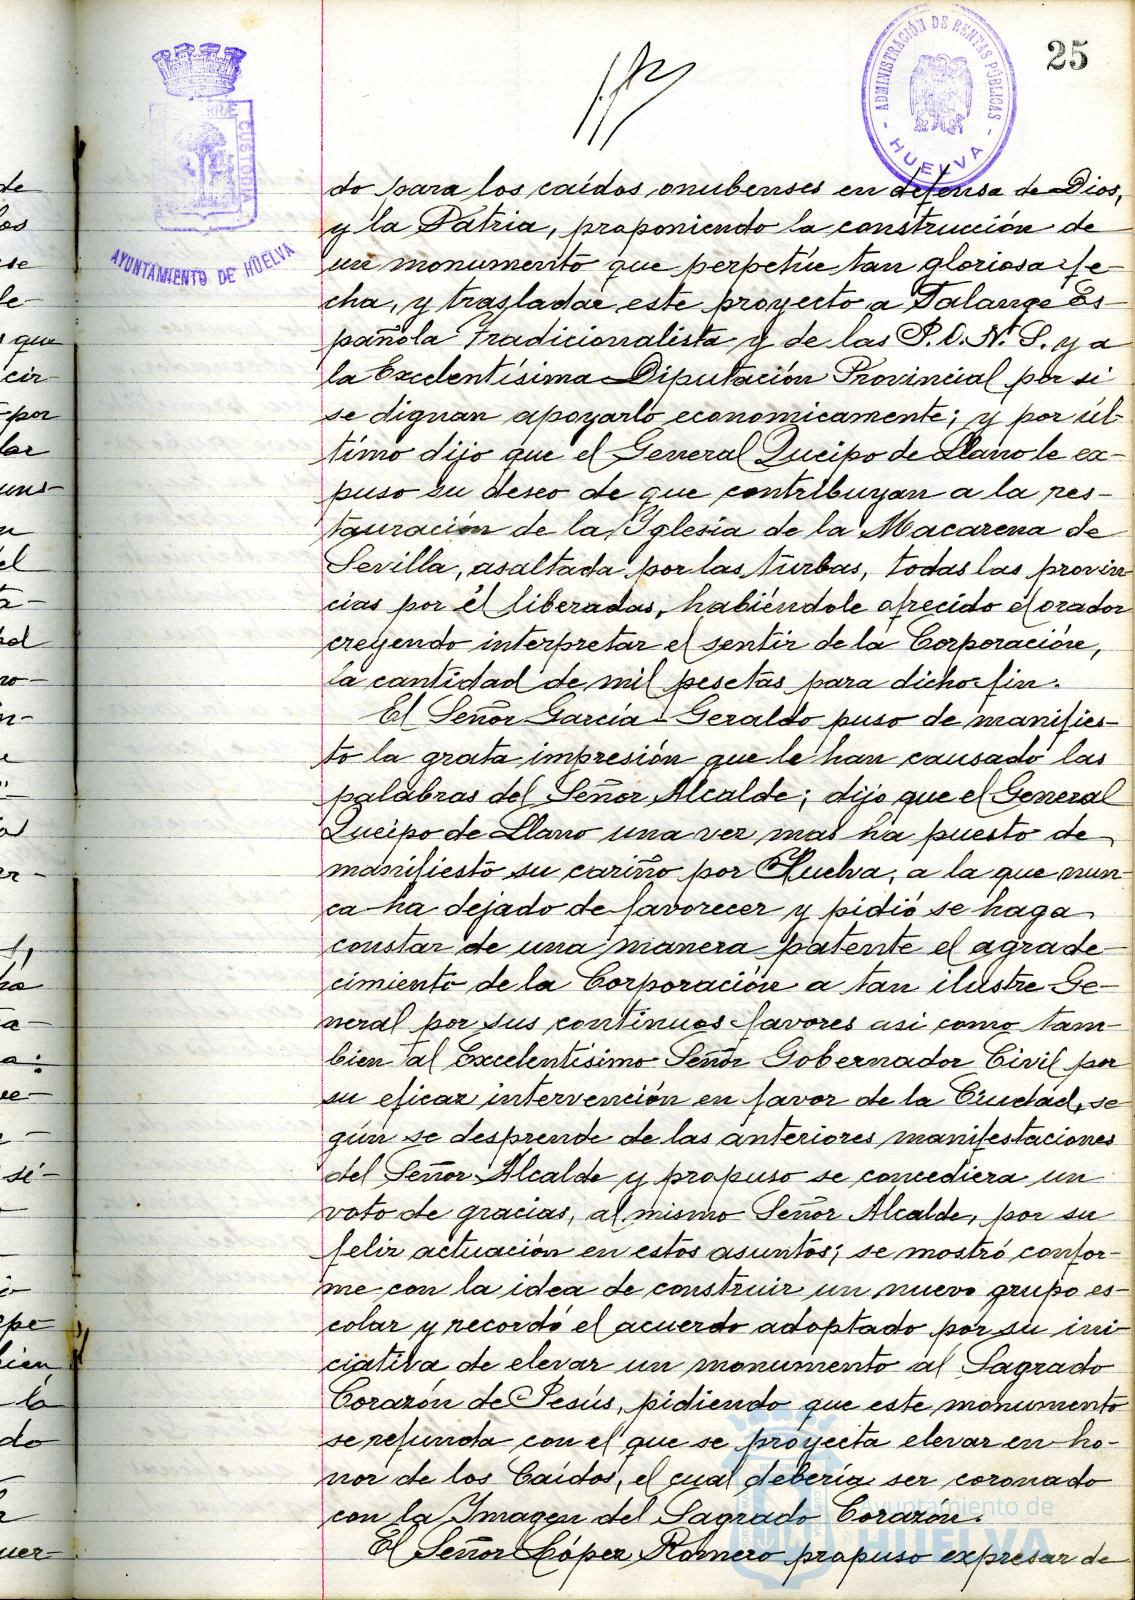 25
ADMINISTRACIÓN DE RENTAS PÚBLICAS
HUELVA
CUSTODIA
AYUNTAMIENTO DE HUELVA
do para los caídos onubenses en defensa de Dios,
y la Patria, proponiendo la construcción de
un monumento que perpetúe tan gloriosa fe-
cha, y trasladar este proyecto a Falange Es-
pañola Tradicionalista y de las J.O.N.S. y a
la Excelentísima Diputación Provincial por si
se dignan apoyarlo economicamente; y por úl-
timo dijo que el General Queipo de Llano le ex-
puso su deseo de que contribuyan a la res-
tauración de la Yglesia de la Macarena de
Sevilla, asaltada por las turbas, todas las provin-
cias por él liberadas, habiéndole ofrecido el orador
creyendo interpretar el sentir de la Corporación,
la cantidad de mil pesetas para dicho fin.
El Señor García-Geraldo puso de manifies-
to la grata impresión que le han causado las
palabras del Señor Alcalde; dijo que el General
Queipo de Llano una vez mas ha puesto de
manifiesto su cariño por Huelva, a la que nun-
ca ha dejado de favorecer y pidió se haga
constar de una manera patente el agrade-
cimiento de la Corporación a tan ilustre Ge-
neral por sus continuos favores asi como tam-
bien al Excelentísimo Señor Gobernador Civil por
su eficaz intervención en favor de la Ciudad, se-
gún se desprende de las anteriores manifestaciones
del Señor Alcalde y propuso se concediera un
voto de gracias, al mismo Señor Alcalde, por su
feliz actuación en estos asuntos; se mostró confor-
me con la idea de construir un nuevo grupo es-
colar y recordó el acuerdo adoptado por su ini-
ciativa de elevar un monumento al Sagrado
Corazón de Jesús, pidiendo que este monumento
se refunda con el que se proyecta elevar en ho-
nor de los Caídos, el cual debería ser coronado
con la Ymagen del Sagrado Corazón.
El Señor López Romero propuso expresar de
Ayuntamiento de
HUELVA